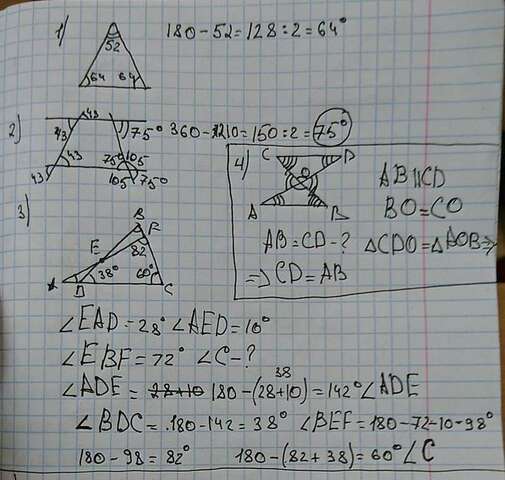 1) 180-52=128:2=64°
52
64 64
2) 43
43 75° 360-210=150:2=75°
43 75° 105
43 105 75°
4) C D
O
A B
AB||CD
BO=CO
AB=CD-? △CDO=△AOB⇒
⇒CD=AB
3) B
F
E 82
A D 38° 60° C
∠EAD=28° ∠AED=10°
∠EBF=72° ∠C-?
38
∠ADE=28+10 180-(28+10)=142° ∠ADE
∠BDC=180-142=38° ∠BEF=180-72-10-98°
180-98=82° 180-(82+38)=60° ∠C